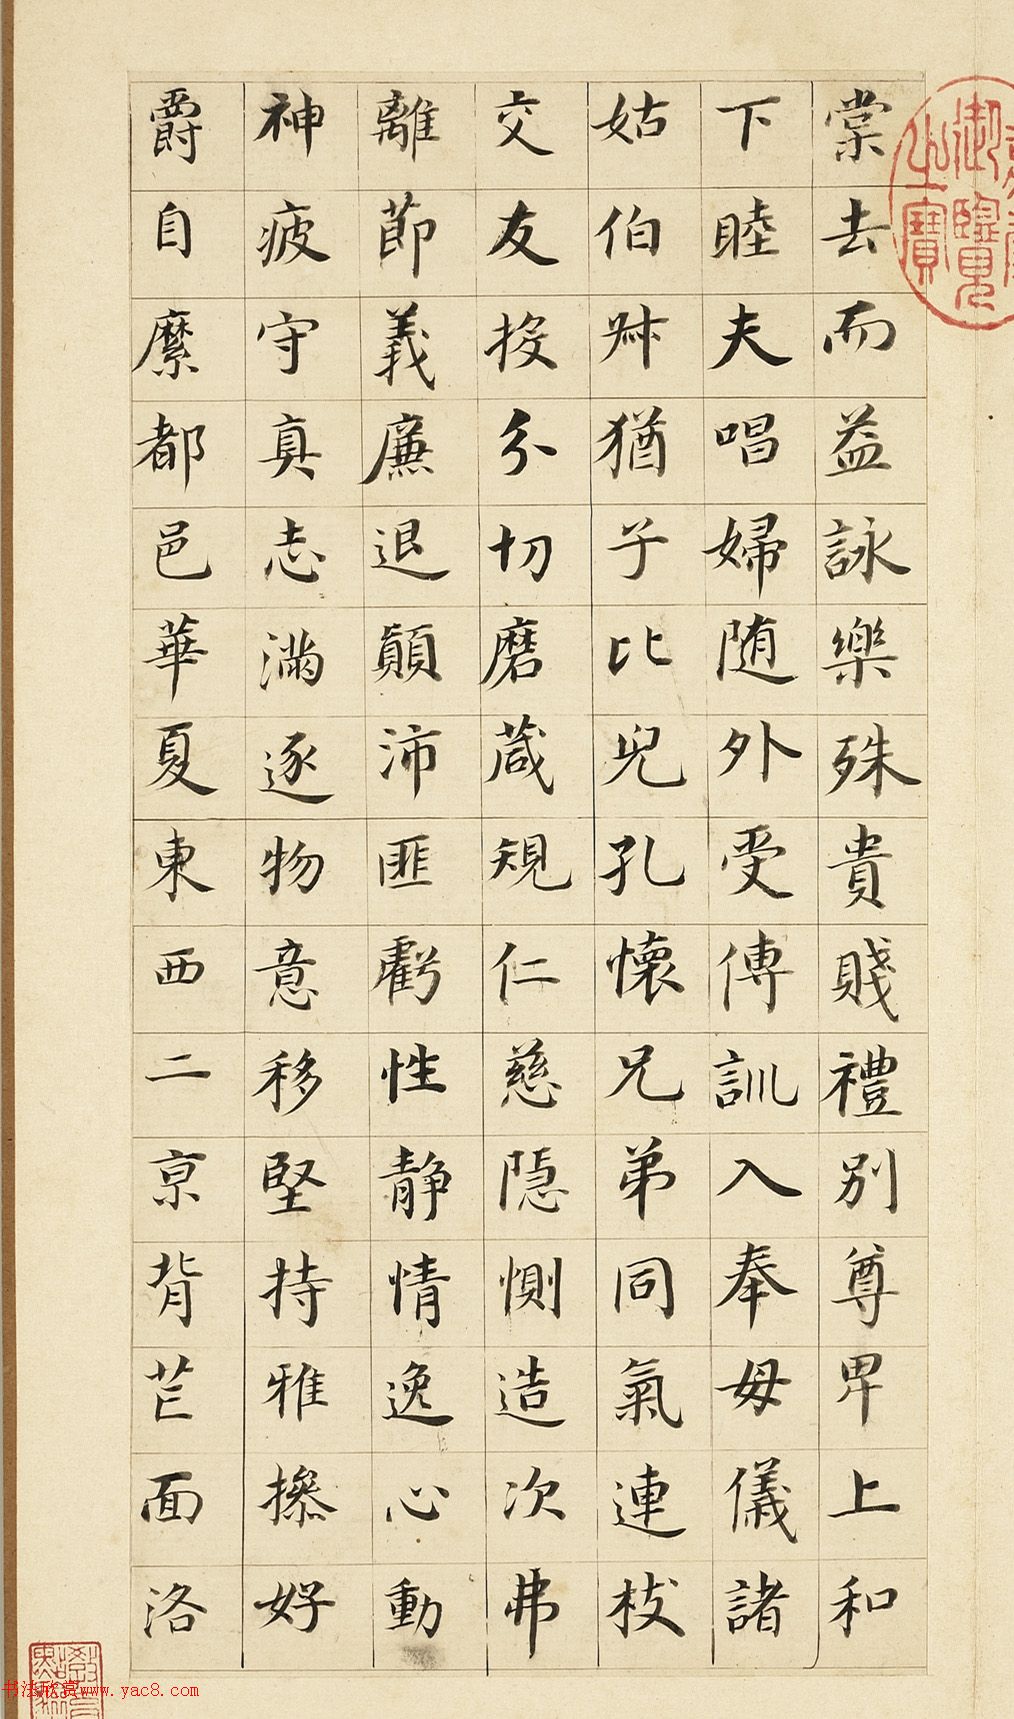 棠去而益詠樂殊貴賤禮別尊卑上和
下睦夫唱婦随外受傅訓入奉母儀諸
姑伯叔猶子比兒孔懷兄弟同氣連枝
交友投分切磨葴規仁慈隱惻造次弗
離莭義廉退顛沛匪虧性静情逸心動
神疲守真志滿逐物意移堅持雅操好
爵自縻都邑華夏東西二亰背芒面洛
御覽之寶
书法欣赏www.yac8.com